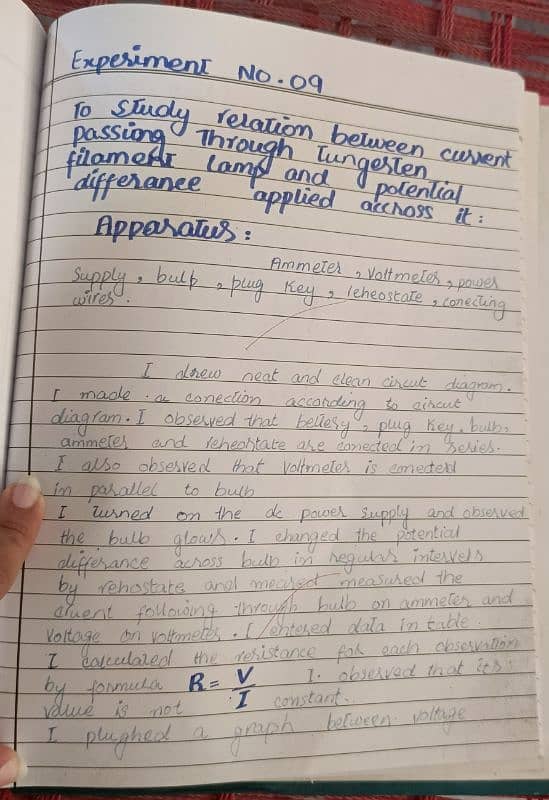 Experiment No.09
To study relation between current
passing through Tungesten
filament lamp and potential
differance applied accross it :
Apparatus :
Ammeter , Voltmeter , power
Supply , bulb , plug Key , reheostate , conecting
wires .
I drew neat and clean circut diagram.
I made a conection according to circut
diagram. I observed that bettery , plug key, bulb,
ammeter and reheostate are conected in series.
I also observed that voltmeter is conected
in parallel to bulb
I turned on the dc power supply and observed
the bulb glows. I changed the potential
differance across bulb in regular intervels
by rehostate and measured the
current following through bulb on ammeter and
voltage on voltmeter. I entered data in table.
I calculated the resistance for each observation
by formula R = V/I I. observed that its
value is not constant.
I plughed a graph between voltage